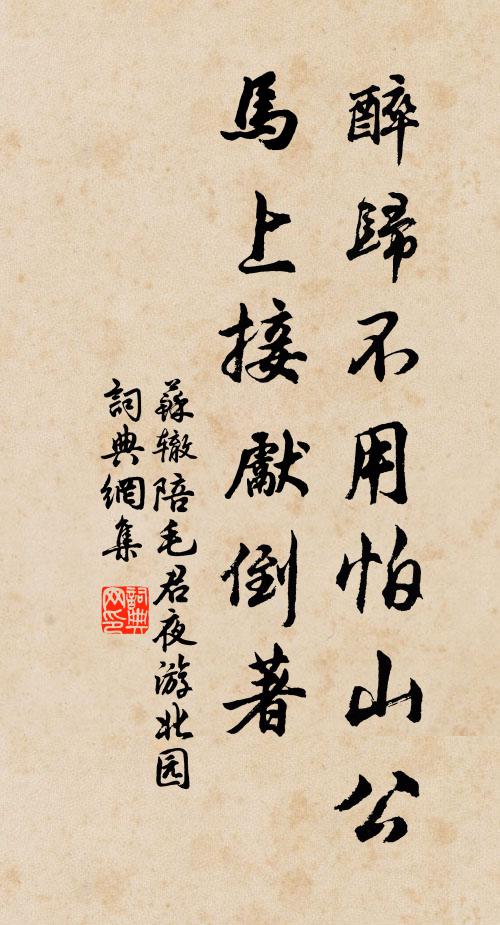 醉歸不用怕山公
馬上接獻倒著
蘇辙陪毛君夜游北园
詞典網集
詞典
网印